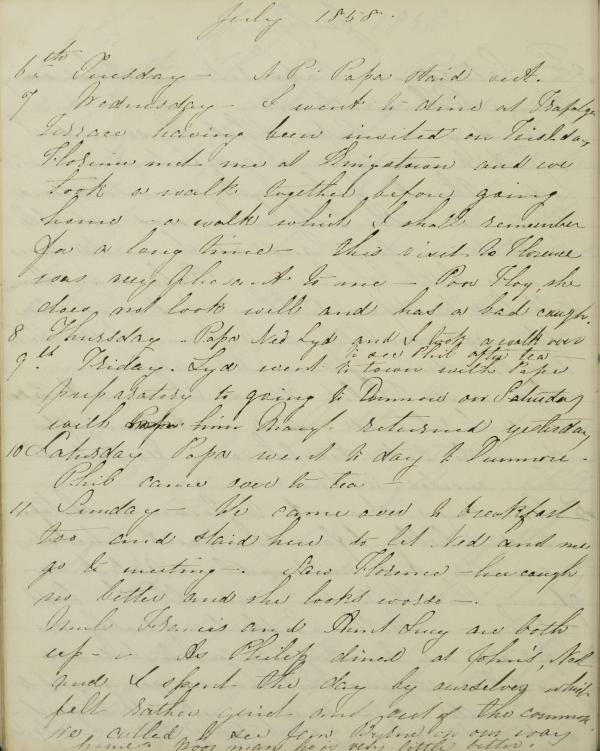 July 1858.
6th Tuesday - N P. Papa staid out.
7 Wednesday - I went to dine at Trafalgar
Terrace having been invited on Tuesday
Florence met me at Kingstown and we
took a walk together before going
home - a walk which I shall remember
for a long time - This visit to Florence
was very pleasant to me - Poor Floy she
does not look well and has a bad cough.
8 Thursday - Papa Ned Lyd and I took a walk over
to see Phil after tea
9th. Friday. Lyd went to town with Papa
preparatory to going to Dunmore on Saturday
with Papa him returned yesterday
10 Saturday Papa went to day to Dunmore -
Phil came over to tea -
11 Sunday - He came over to breakfast
too and staid here to let Ned and me
go to meeting -. Saw Florence - her cough
no better and she looks worse -.
Uncle Francis and Aunt Lucy are both
up - - As Philip dined at John's, Ned
and I spent the day by ourselves which
felt rather quiet and out of the common
We called to see on our way
home - Poor man he is very little better.